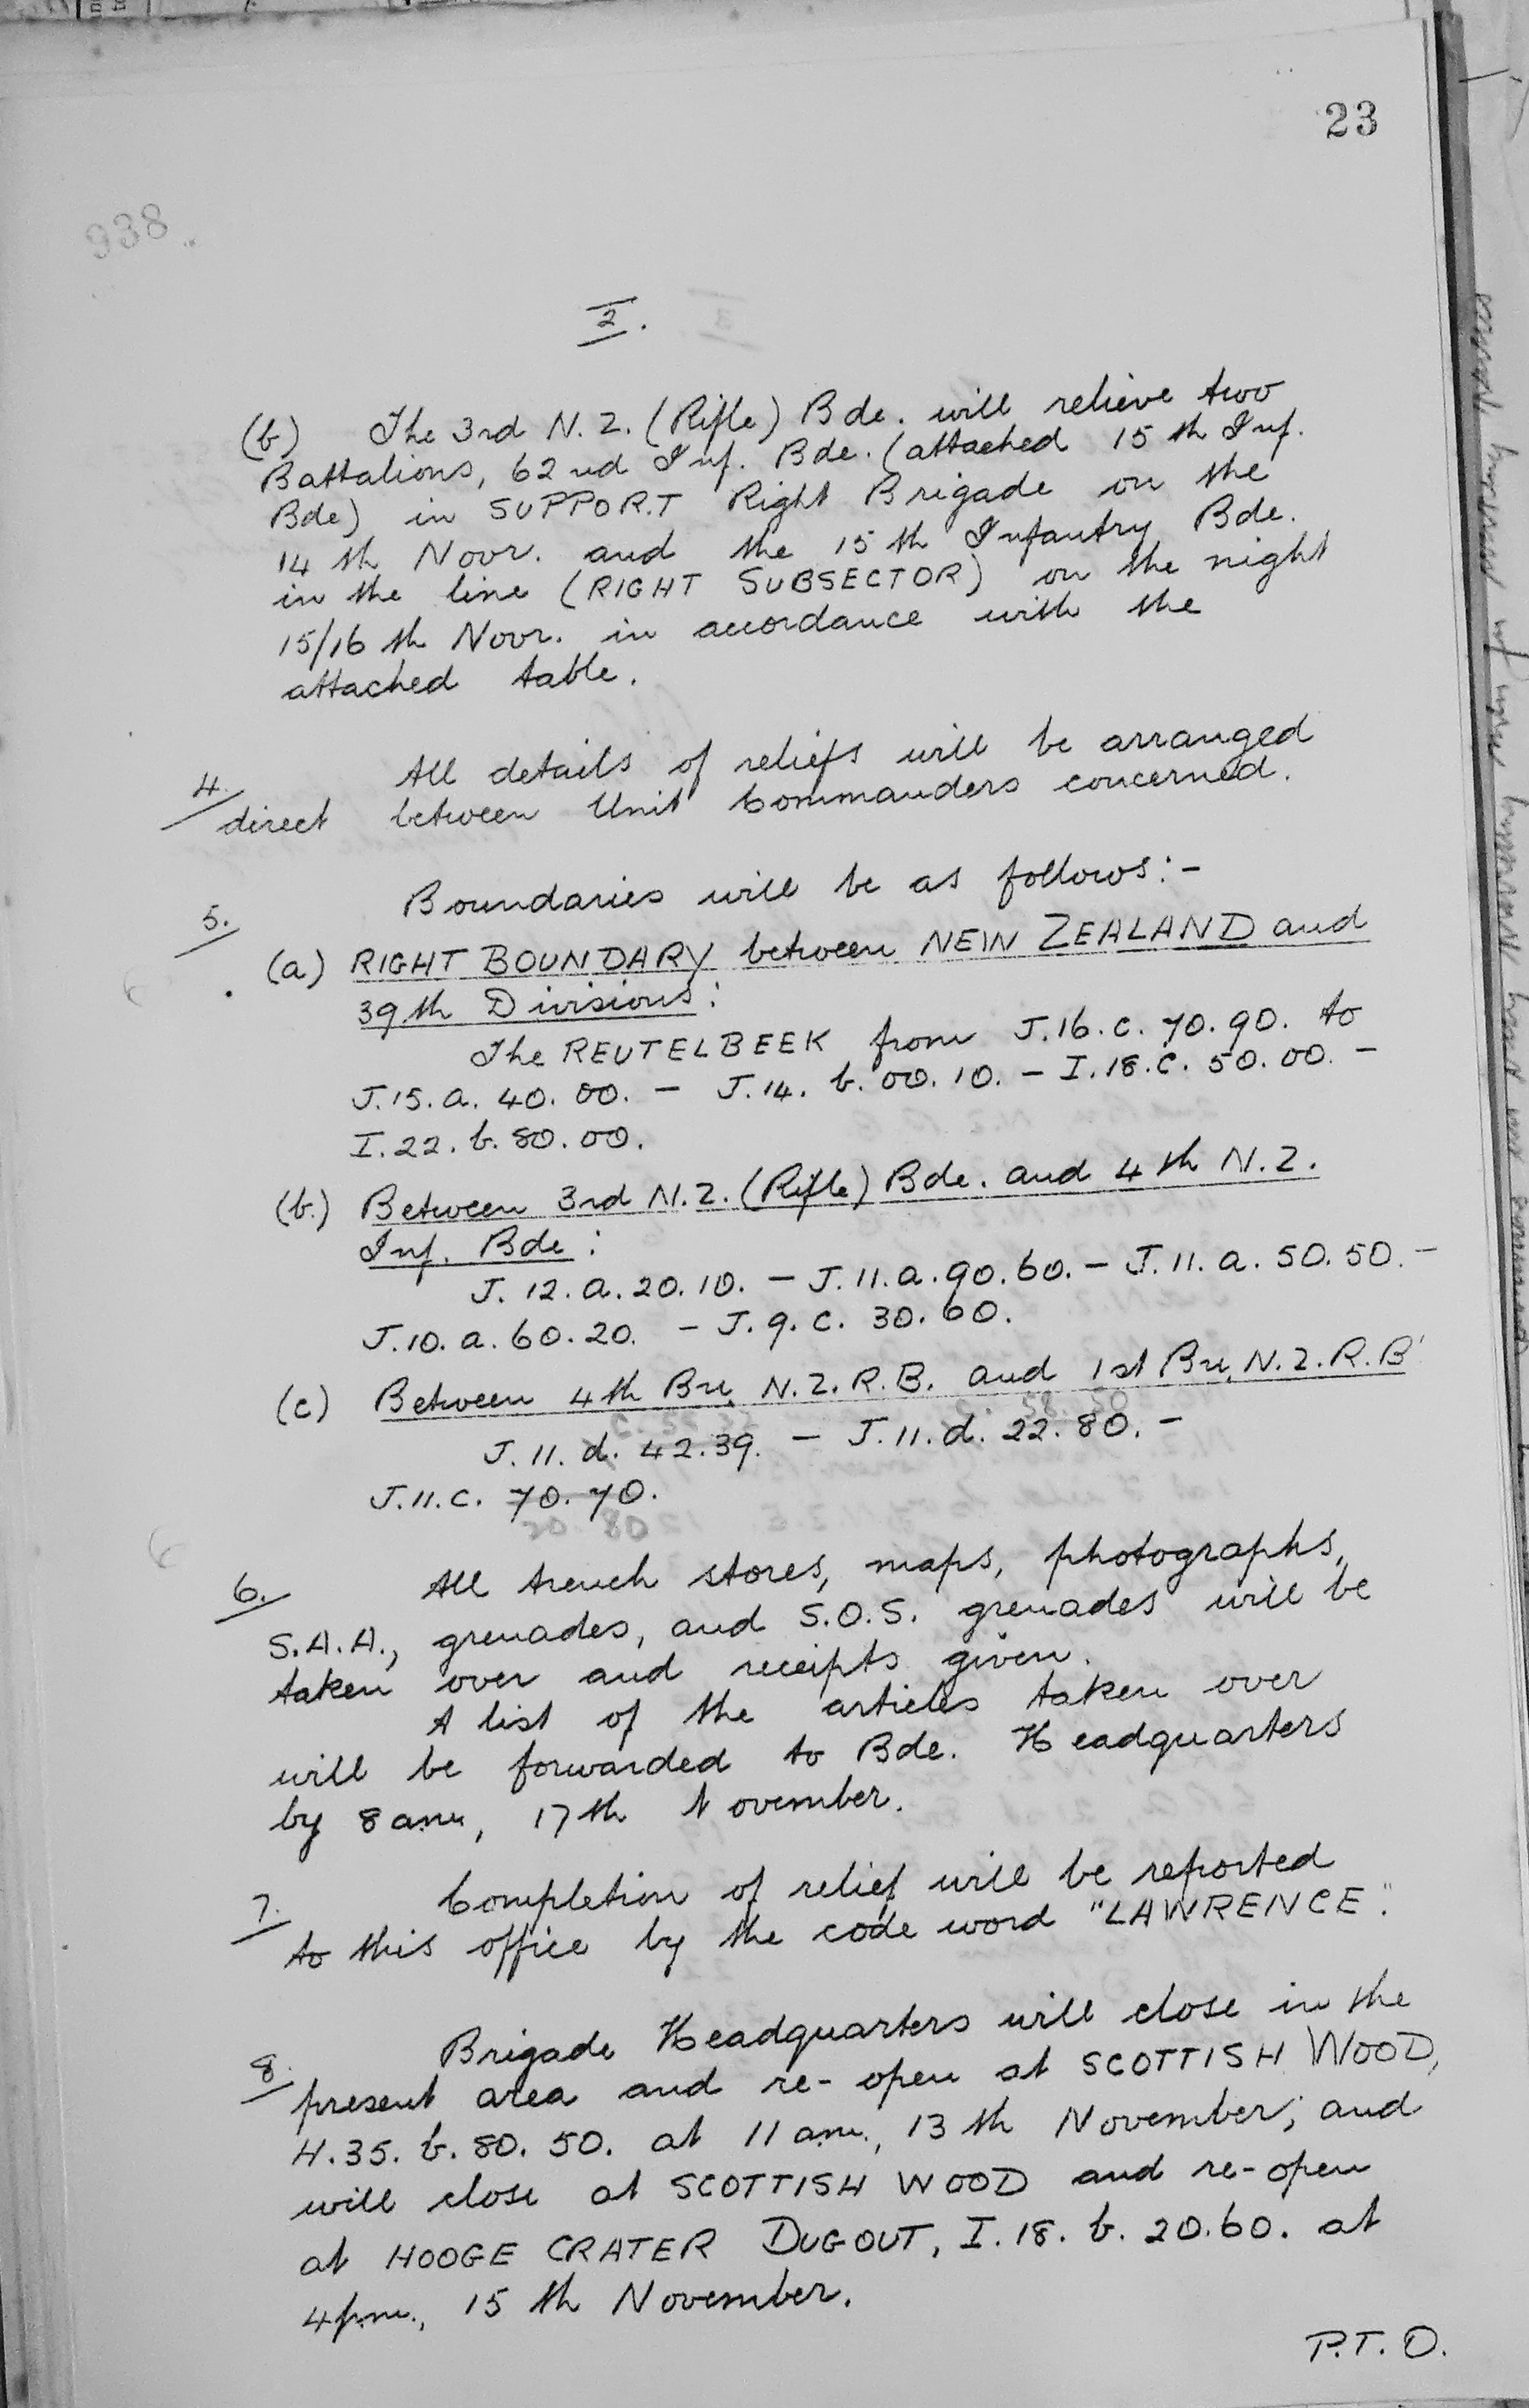 23
938
2.
(b) The 3rd N.Z. (Rifle) Bde. will relieve two
Battalions, 62nd Inf. Bde. (attached 15th Inf.
Bde) in SUPPORT Right Brigade on the
14th Novr. and the 15th Infantry Bde.
in the line (RIGHT SUBSECTOR) on the night
15/16th Novr. in accordance with the
attached table.
4. All details of reliefs will be arranged
direct between Unit Commanders concerned.
5. Boundaries will be as follows:-
(a) RIGHT BOUNDARY between NEW ZEALAND and
39th Divisions:
The REUTELBEEK from J.16.c.70.90. to
J.15.a.40.00. - J.14.b.00.10. - I.18.c.50.00. -
I.22.b.80.00.
(b.) Between 3rd N.Z. (Rifle) Bde. and 4th N.Z.
Inf. Bde:
J.12.a.20.10. - J.11.a.90.60. - J.11.a.50.50. -
J.10.a.60.20. - J.9.c.30.60.
(c) Between 4th Bn. N.Z.R.B. and 1st Bn. N.Z.R.B
58.50
J.11.d.42.39. - J.11.d.22.80. -
J.11.c.70.70.
20.80
6. All trench stores, maps, photographs,
S.A.A., grenades, and S.O.S. grenades will be
taken over and receipts given.
A list of the articles taken over
will be forwarded to Bde. Headquarters
by 8am, 17th November.
7. Completion of relief will be reported
to this office by the code word "LAWRENCE".
8. Brigade Headquarters will close in the
present area and re-open at SCOTTISH WOOD,
H.35.b.80.50. at 11am., 13th November; and
will close at SCOTTISH WOOD and re-open
at HOOGE CRATER DUGOUT, I.18.b.20.60. at
4pm., 15th November.
P.T.O.